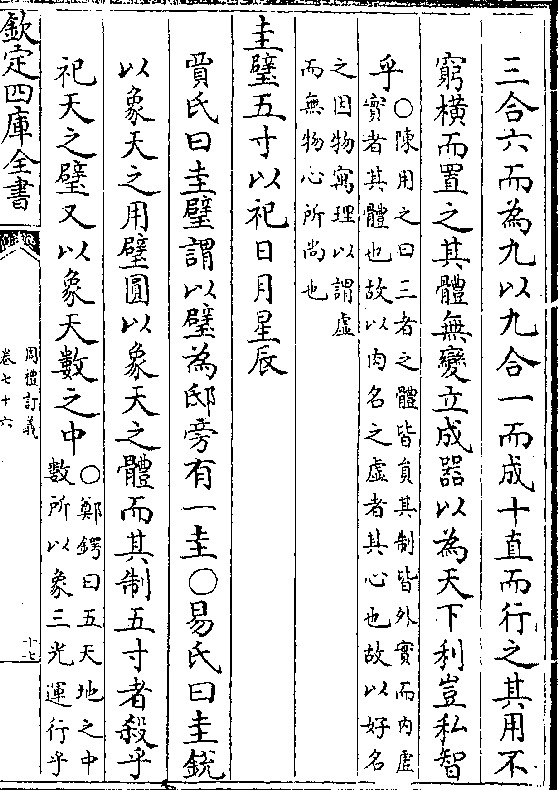 三合六而為九以九合一而成十直而行之其用不
窮橫而置之其體無變立成器以為天下利豈私智
乎
○陳用之曰三者之體皆負其制皆外實而内虛
實者其體也故以肉名之虛者其心也故以好名
之因物寓理以謂虛
而無物心所尚也
圭璧五寸以祀日月星辰
賈氏曰圭璧謂以璧為邸旁有一圭○易氏曰圭銳
以象天之用璧圓以象天之體而其制五寸者殺乎
祀天之璧又以象天數之中
○鄭鍔曰五天地之中
數所以象三光運行乎
欽定四庫全書
周禮訂義
卷七十六
十七